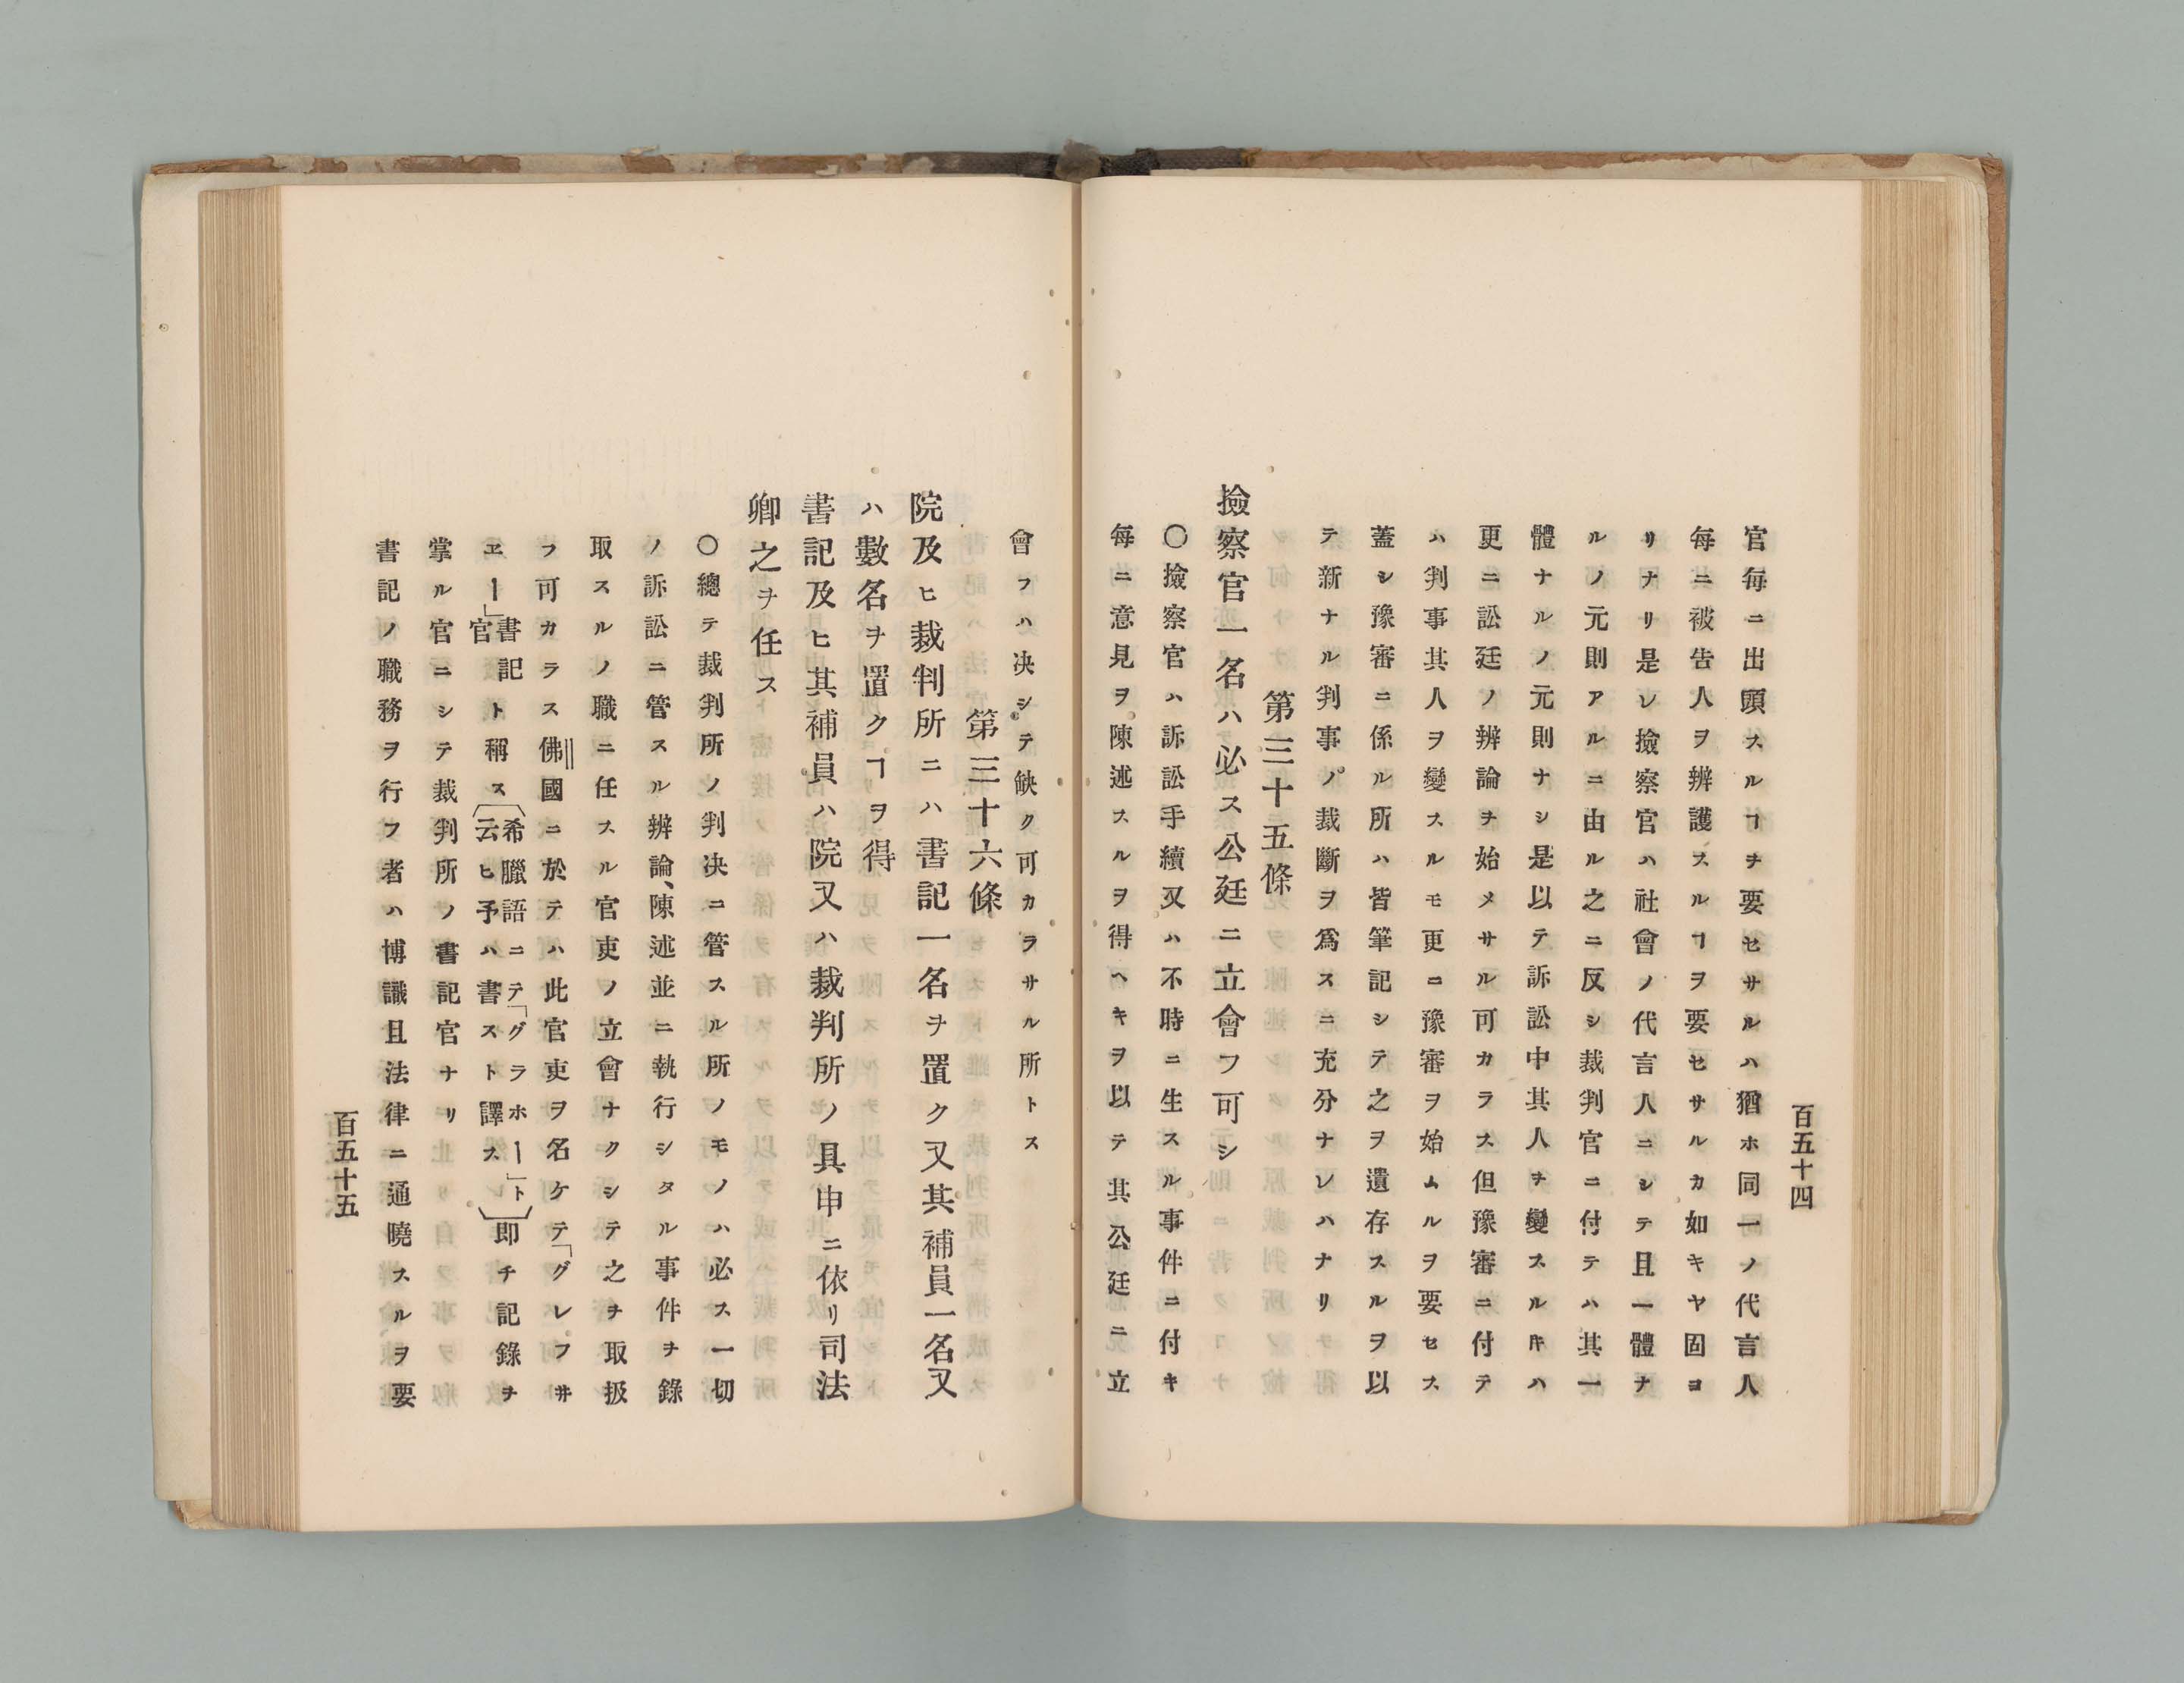 百五十四
官毎ニ出頭スルヿヲ要セサルハ猶ホ同一ノ代言人
毎ニ被告人ヲ辨護スルヿヲ要セサルカ如キヤ固ヨ
リナリ是レ撿察官ハ社會ノ代言人ニシテ且一體ナ
ルノ元則アルニ由ル之ニ反シ裁判官ニ付テハ其一
體ナルノ元則ナシ是以テ訴訟中其人ヲ變スルキハ
更ニ訟廷ノ辨論ヲ始メサル可カラス但豫審ニ付テ
ハ判事其人ヲ變スルモ更ニ豫審ヲ始ムルヲ要セス
蓋シ豫審ニ係ル所ハ皆筆記シテ之ヲ遺存スルヲ以
テ新ナル判事ノ裁斷ヲ爲スニ充分ナレハナリ
第三十五條
撿察官一名ハ必ス公廷ニ立會フ可シ
〇撿察官ハ訴訟手續又ハ不時ニ生スル事件ニ付キ
毎ニ意見ヲ陳述スルヲ得ヘキヲ以テ其公廷ニ立
會フハ决シテ缺ク可カラサル所トス
第三十六條
院及ヒ裁判所ニハ書記一名ヲ置ク又其補員一名又
ハ數名ヲ置クヿヲ得
書記及ヒ其補員ハ院又ハ裁判所ノ具申ニ依リ司法
卿之ヲ任ス
〇總テ裁判所ノ判决ニ管スル所ノモノハ必ス一切
ノ訴訟ニ管スル辨論、陳述並ニ執行シタル事件ヲ錄
取スルノ職ニ任スル官吏ノ立會ナクシテ之ヲ取扱
フ可カラス佛國ニ於テハ此官吏ヲ名ケテ「グレフ井
エー」書記官ト稱ス（希臘語ニテ「グラホー」ト云ヒ予ハ書スト譯ス）即チ記錄ヲ
掌ル官ニシテ裁判所ノ書記官ナリ
書記ノ職務ヲ行フ者ハ博識且法律ニ通曉スルヲ要
百五十五